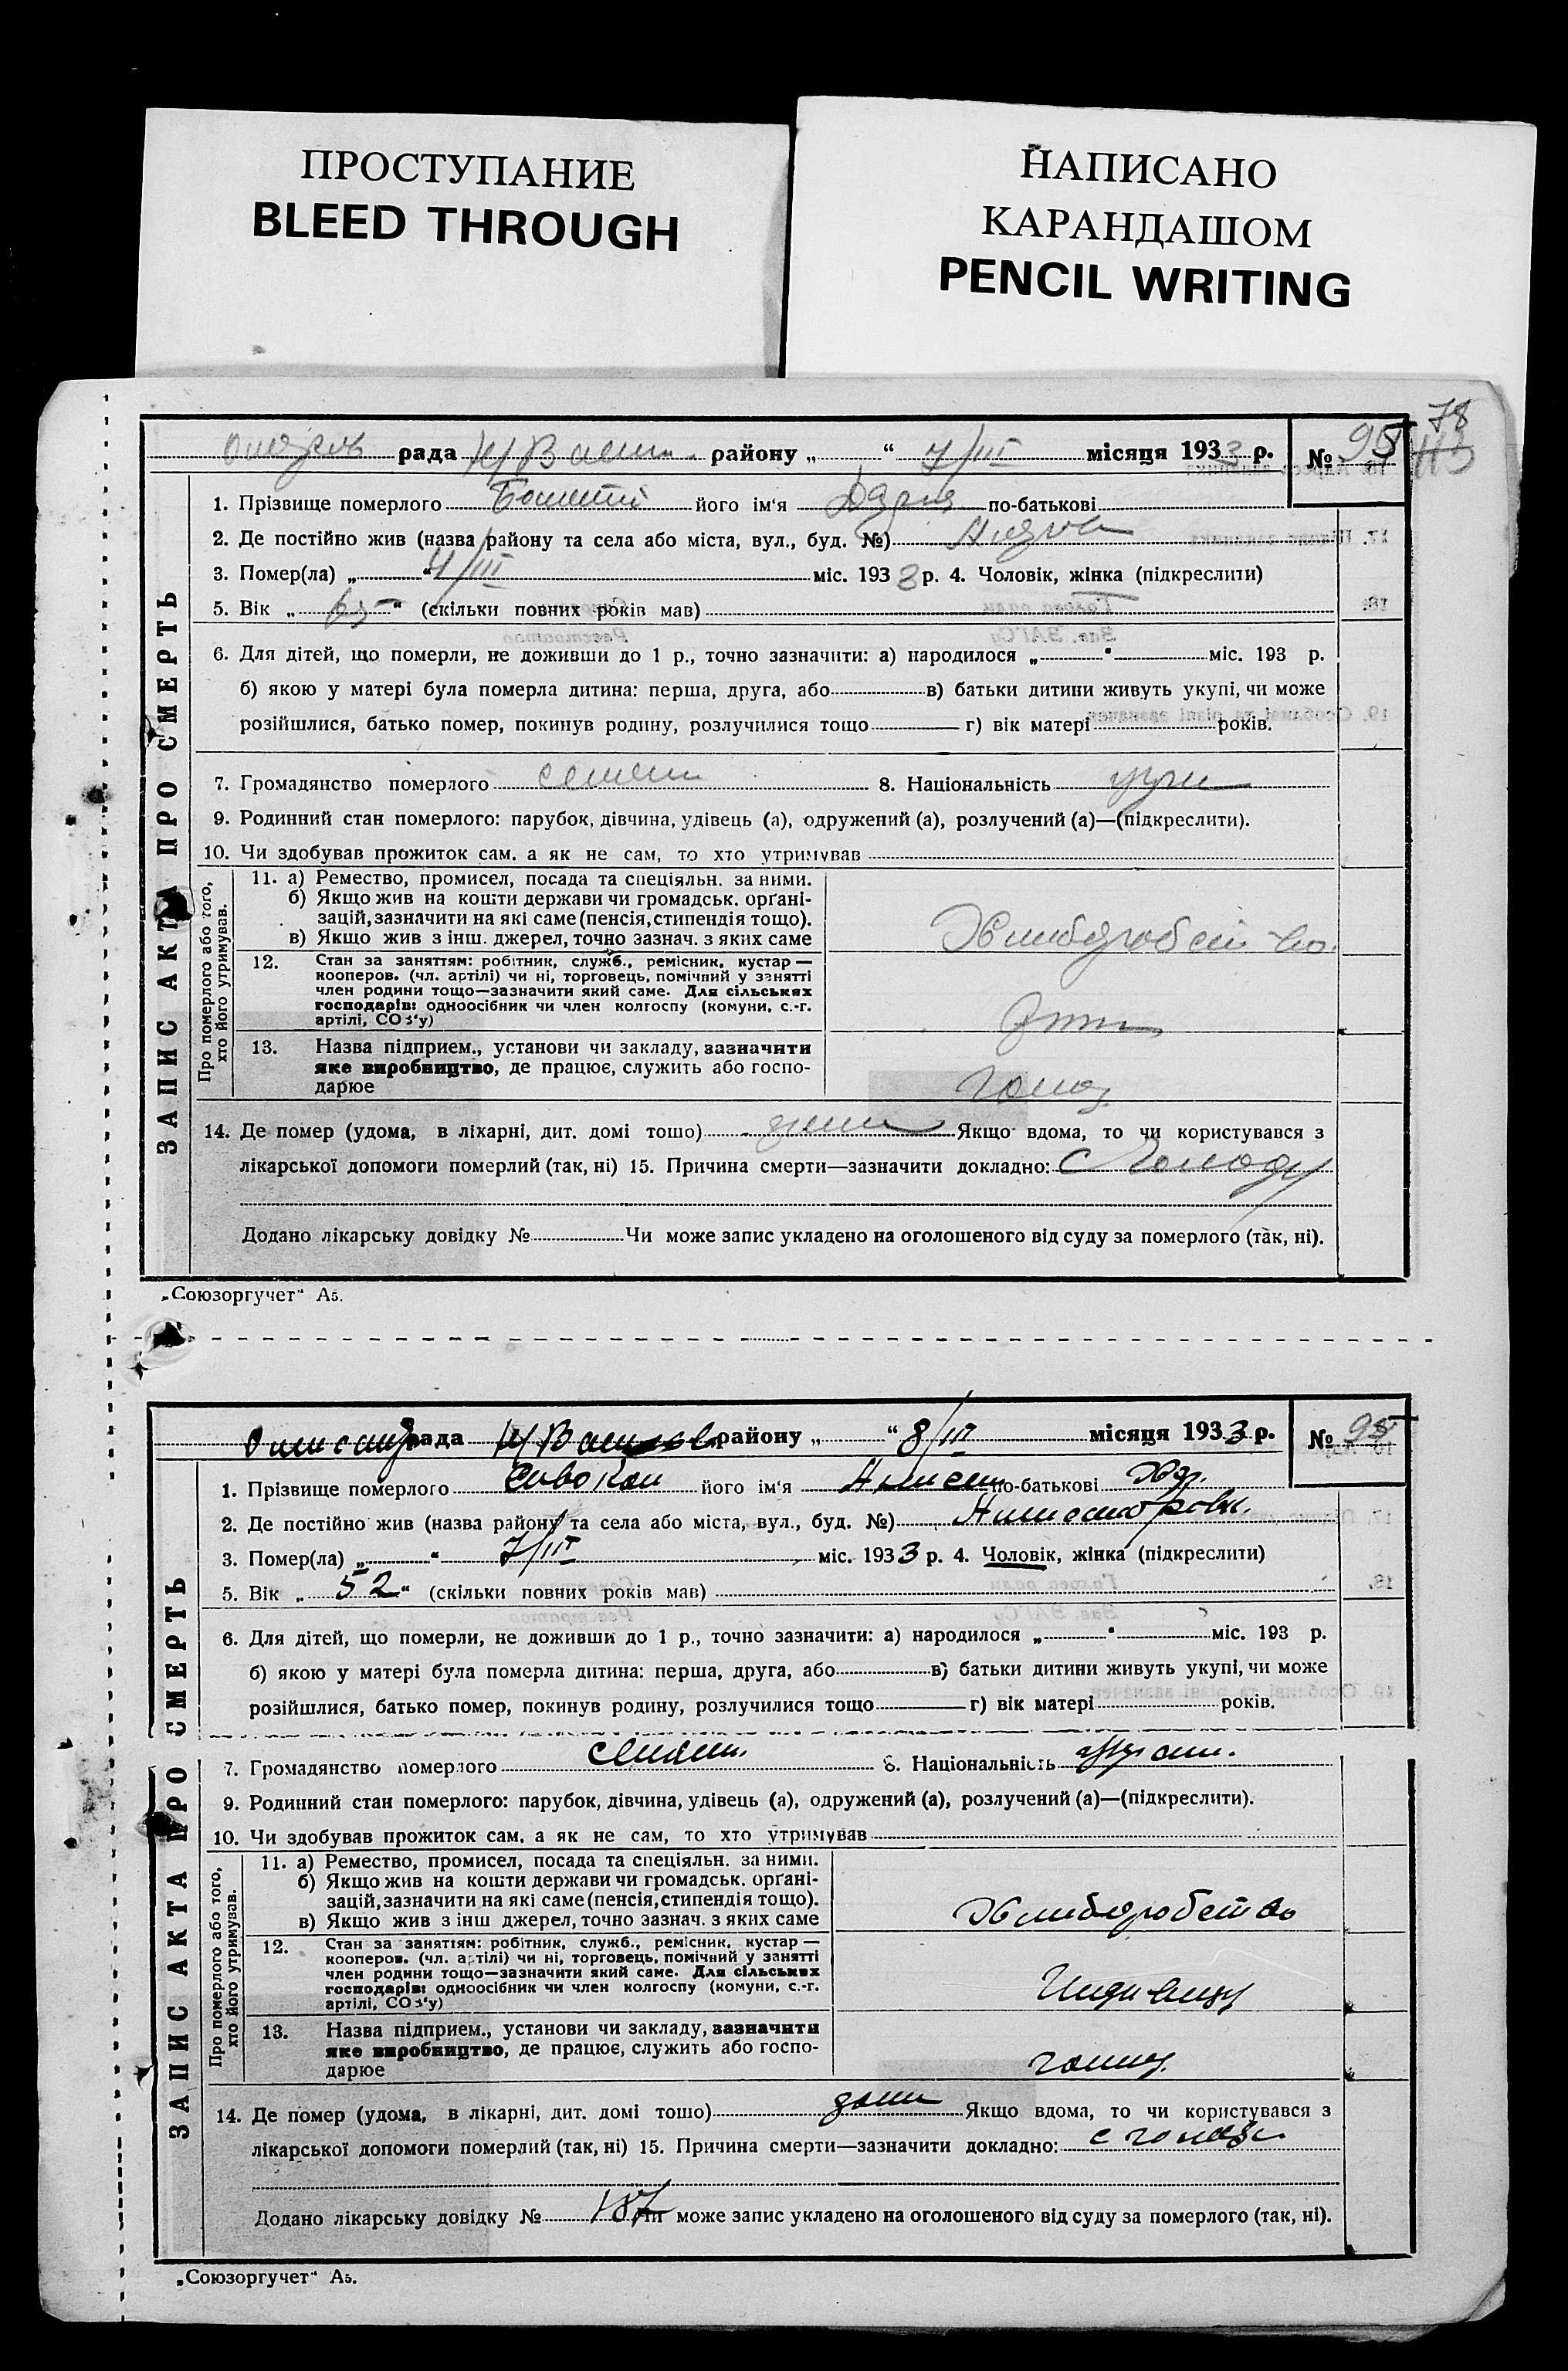 ПРОСТУПАНИЕ
BLEED THROUGH
НАПИСАНО
КАРАНДАШОМ
PENCIL WRITING
78
113
рада районy „ “ 7/III місяця 1933 р. № 95
1. Прізвище померлого його ім‘я Дарія по-батькові
2. Де постійно жив (назва району та села або міста, вул., буд. №)
3. Помер(ла) „ “ 4/III міс. 1933 р. 4. Чоловік, жінка (підкреслити)
5. Вік „ 65 “ (скільки повних років мав)
6. Для дітей, що померли, не доживши до 1 р., точно зазначити: а) народилося „ “ міс. 193 р.
б) якою у матері була померла дитина: перша, друга, або в) батьки дитини живуть укупі, чи може
розійшлися, батько помер, покинув родину, розлучилися тощо г) вік матері років.
7. Громадянство померлого 8. Національність укр
9. Родинний стан померлого: парубок, дівчина, удівець (а), одружений (а), розлучений (а)—(підкреслити).
10. Чи здобував прожиток сам, а як не сам, то хто утримував
ЗАПИС АКТА ПРО СМЕРТЬ
Про померлого або того,
хто його утримував.
11. а) Ремество, промисел, посада та спеціяльн. за ними.
б) Якщо жив на кошти держави чи громадськ. орґані-
зацій, зазначити на які саме (пенсія, стипендія тощо).
в) Якщо жив з інш. джерел, точно зазнач. з яких саме
Хлиборобство
12. Стан за заняттям: робітник, служб., ремісник, кустар —
кооперов. (чл. артілі) чи ні, торговець, помічний у занятті
член родини тощо—зазначити який саме. Для сільських
господарів: одноосібник чи член колгоспу (комуни, с.-г.
артілі, СОЗ‘у)
13. Назва підприєм., установи чи закладу, зазначити
яке виробництво, де працює, служить або госпо-
дарює
14. Де помер (удома, в лікарні, дит. домі тощо) дома Якщо вдома, то чи користувався з
лікарської допомоги померлий (так, ні) 15. Причина смерти—зазначити докладно: с голоду
Додано лікарську довідку № Чи може запис укладено на оголошеного від суду за померлого (так, ні).
„Союзоргучет“ А5.
рада району „ “ 8/III місяця 1933 р. № 95
1. Прізвище померлого Сивокон його ім‘я по-батькові
2. Де постійно жив (назва району та села або міста, вул., буд. №)
3. Помер(ла) „ “ 7/III міс. 1933 р. 4. Чоловік, жінка (підкреслити)
5. Вік „ 52 “ (скільки повних років мав)
6. Для дітей, що померли, не доживши до 1 р., точно зазначити: а) народилося „ “ міс. 193 р.
б) якою у матері була померла дитина: перша, друга, або в) батьки дитини живуть укупі, чи може
розійшлися, батько помер, покинув родину, розлучилися тощо г) вік матері років.
7. Громадянство померлого 8. Національність
9. Родинний стан померлого: парубок, дівчина, удівець (а), одружений (а), розлучений (а)—(підкреслити).
10. Чи здобував прожиток сам, а як не сам, то хто утримував
ЗАПИС АКТА ПРО СМЕРТЬ
Про померлого або того,
хто його утримував.
11. а) Ремество, промисел, посада та спеціяльн. за ними.
б) Якщо жив на кошти держави чи громадськ. орґані-
зацій, зазначити на які саме (пенсія, стипендія тощо).
в) Якщо жив з інш джерел, точно зазнач. з яких саме
Хлиборобство
12. Стан за заняттям: робітник, служб., ремісник, кустар —
кооперов. (чл. артілі) чи ні, торговець, помічний у занятті
член родини тощо—зазначити який саме. Для сільських
господарів: одноосібник чи член колгоспу (комуни, с.-г.
артілі, СОЗ‘у)
13. Назва підприєм., установи чи закладу, зазначити
яке виробництво, де працює, служить або госпо-
дарює
14. Де помер (удома, в лікарні, дит. домі тощо) дома Якщо вдома, то чи користувався з
лікарської допомоги померлий (так, ні) 15. Причина смерти—зазначити докладно: с голоду
Додано лікарську довідку № 187 може запис укладено на оголошеного від суду за померлого (так, ні).
„Союзоргучет“ А5.